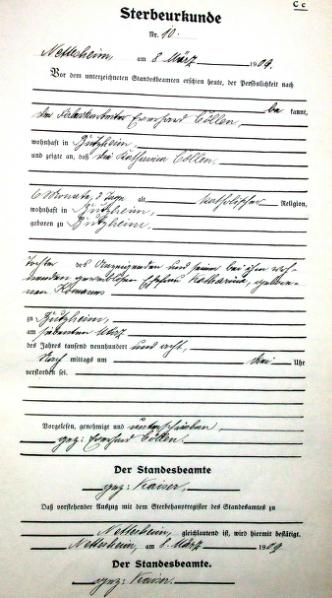 C c
Sterbeurkunde
Nr. 10.
Nettesheim, am 8. März 1909.
Vor dem unterzeichneten Standesbeamten erschien heute, der Persönlichkeit nach
be kannt,
der Everhard Cöllen,
wohnhaft in Bützheim,
und zeigte an, daß die Katharina Cöllen,
6 Monate, Tage alt, katholischer Religion,
wohnhaft in Bützheim,
geboren zu Bützheim,
Tochter des Anzeigenden und seiner bei ihm woh-
nenden Ehefrau Katharina, gebore-
nen
zu Bützheim,
am siebenten März
des Jahres tausend neunhundert und
Nach mittags um drei Uhr
verstorben sei.
Vorgelesen, genehmigt und unterschrieben
gez: Everhard Cöllen.
Der Standesbeamte
gez: Kaiser.
Daß vorstehender Auszug mit dem Sterbehauptregister des Standesamtes zu
Nettesheim, gleichlautend ist, wird hiermit bestätigt.
Nettesheim, am 8. März 1909
Der Standesbeamte.
gez: Kaiser.